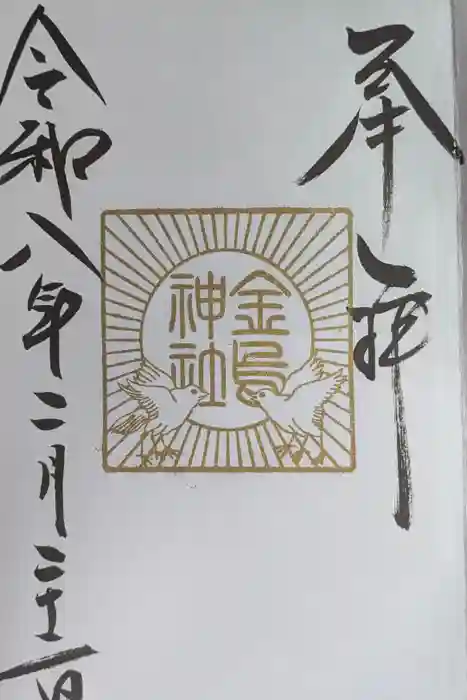 奉拝
金烏
神社
令和八年二月二十二日